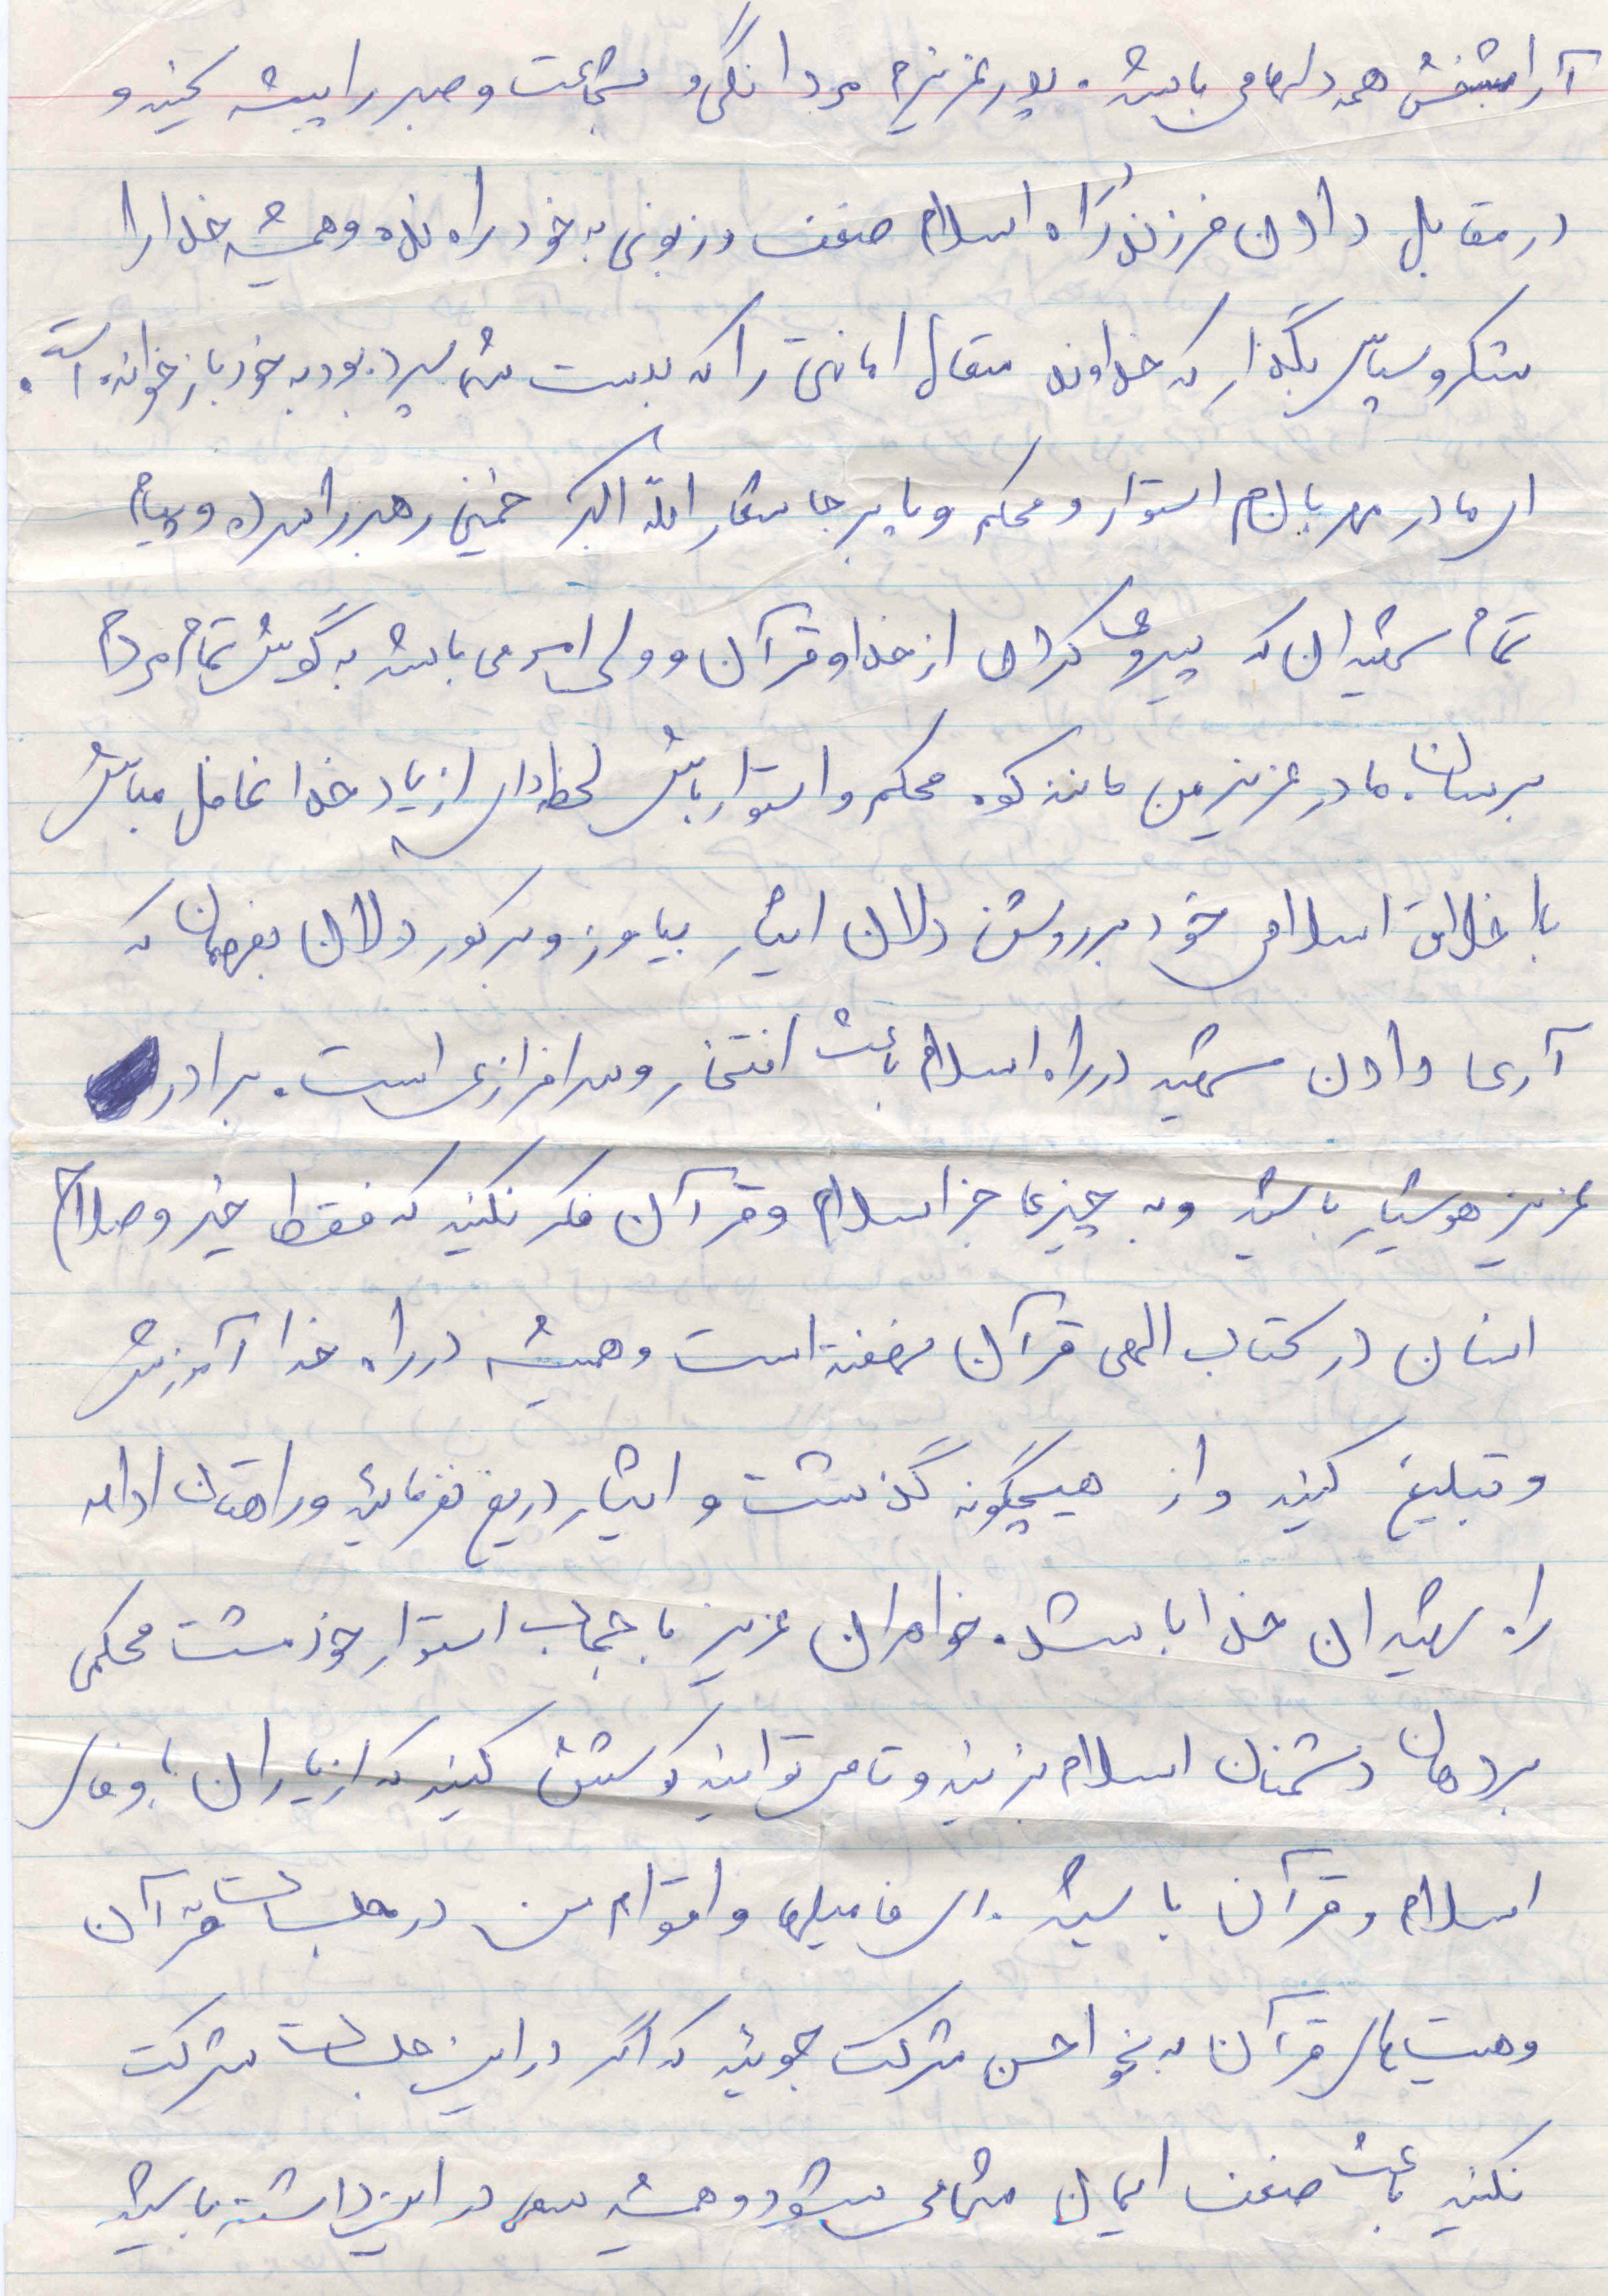 آرامبخش همه دلها می باشد. پدر عزیزم مردانگی و شجاعت و صبر را پیشه کنید و
در مقابل دادن فرزند در راه اسلام ضعف و زبونی به خود راه نده و همیشه خدا را
شکر و سپاس بگذار که خداوند متعال امانتی را که بدست شما سپرده بود به خود باز خوانده است.
ای مادر مهربانم استوار و محکم و پا برجا شعار الله اکبر خمینی رهبر را سر ده و پیام
تمام شهیدان که پیروی کردن از خدا و قرآن و ولی امر می باشد به گوش تمام مردم
برسان. مادر عزیز من مانند کوه محکم و استوار باش لحظه ای از یاد خدا غافل مباش
با اخلاق اسلامی خود بر روشن دلان ایثار بیاموز و بر کور دلان بفهمان که
آری دادن شهید در راه اسلام باعث افتخار و سرافرازی است. برادر
عزیز هوشیار باشید و به چیزی جز اسلام و قرآن فکر نکنید که فقط خیر و صلاح
انسان در کتاب الهی قرآن نهفته است و همیشه در راه خدا آموزش
و تبلیغ کنید و از هیچگونه گذشت و ایثار دریغ نفرمائید و راهتان ادامه
راه شهیدان خدا باشد. خواهران عزیز با حجاب استوار خود مشت محکمی
بر دهان دشمنان اسلام بزنید و تا می توانید کوشش کنید که از یاران با وفای
اسلام و قرآن باشید. ای فامیلها و اقوام من در جلسات قرآن
و هیت های قرآن به نحو احسن شرکت جوئید که اگر در این جلسات شرکت
نکنید باعث ضعف ایمان شما می شود و همیشه سعی در این داشته باشید